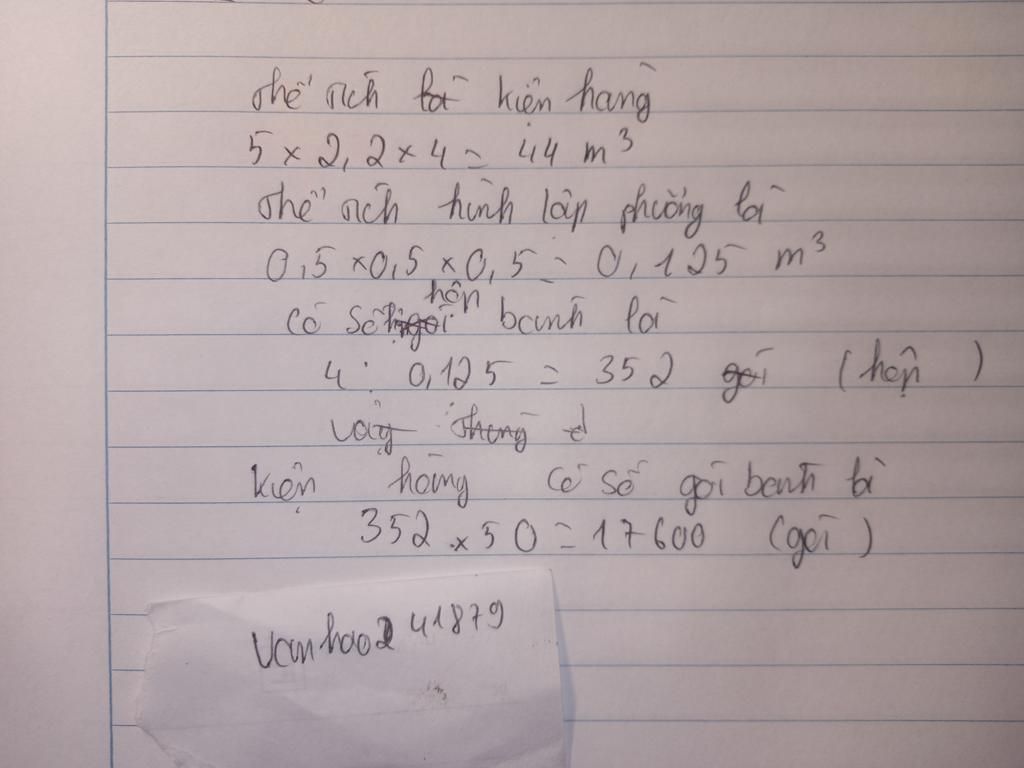 thể tích kiện hàng
5 × 2,2 × 4 = 44 m³
thể tích hình lập phường là
0,5 × 0,5 × 0,5 = 0,125 m³
có số hộp bánh là
4 : 0,125 = 352 gói (hộp)
vậy thùng đ
kiện hàng có số gói bánh là
352 × 50 = 17600 (gói)
vanhao241879